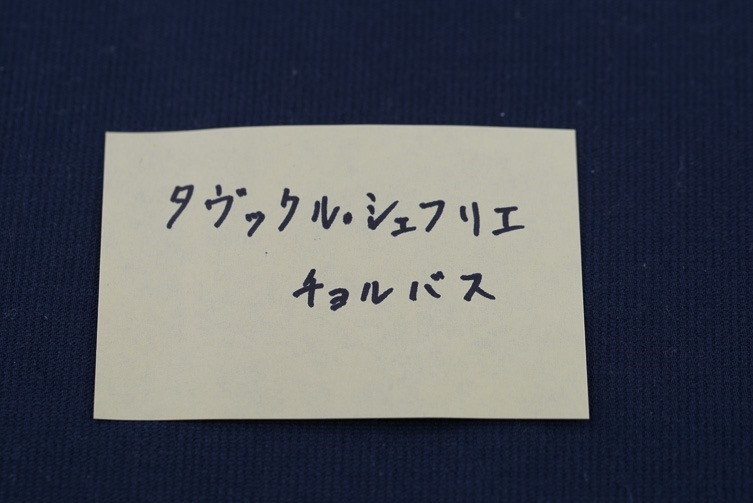 タヴックル・シェフリエ
チョルバス